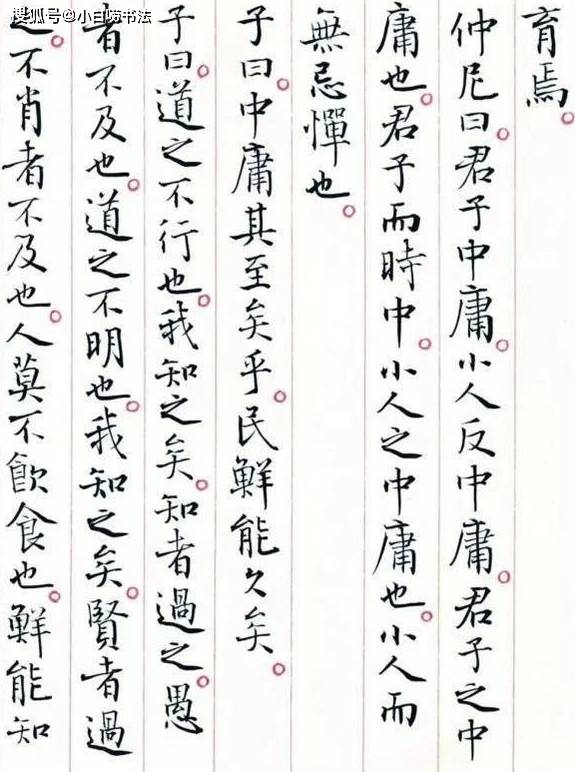 搜狐号@小白喷书法
育焉。
仲尼曰。君子中庸。小人反中庸。君子之中
庸也。君子而時中。小人之中庸也。小人而
無忌憚也。
子曰。中庸其至矣乎。民鮮能久矣。
子曰。道之不行也。我知之矣。知者過之。愚
者不及也。道之不明也。我知之矣。賢者過
之。不肖者不及也。人莫不飲食也。鮮能知